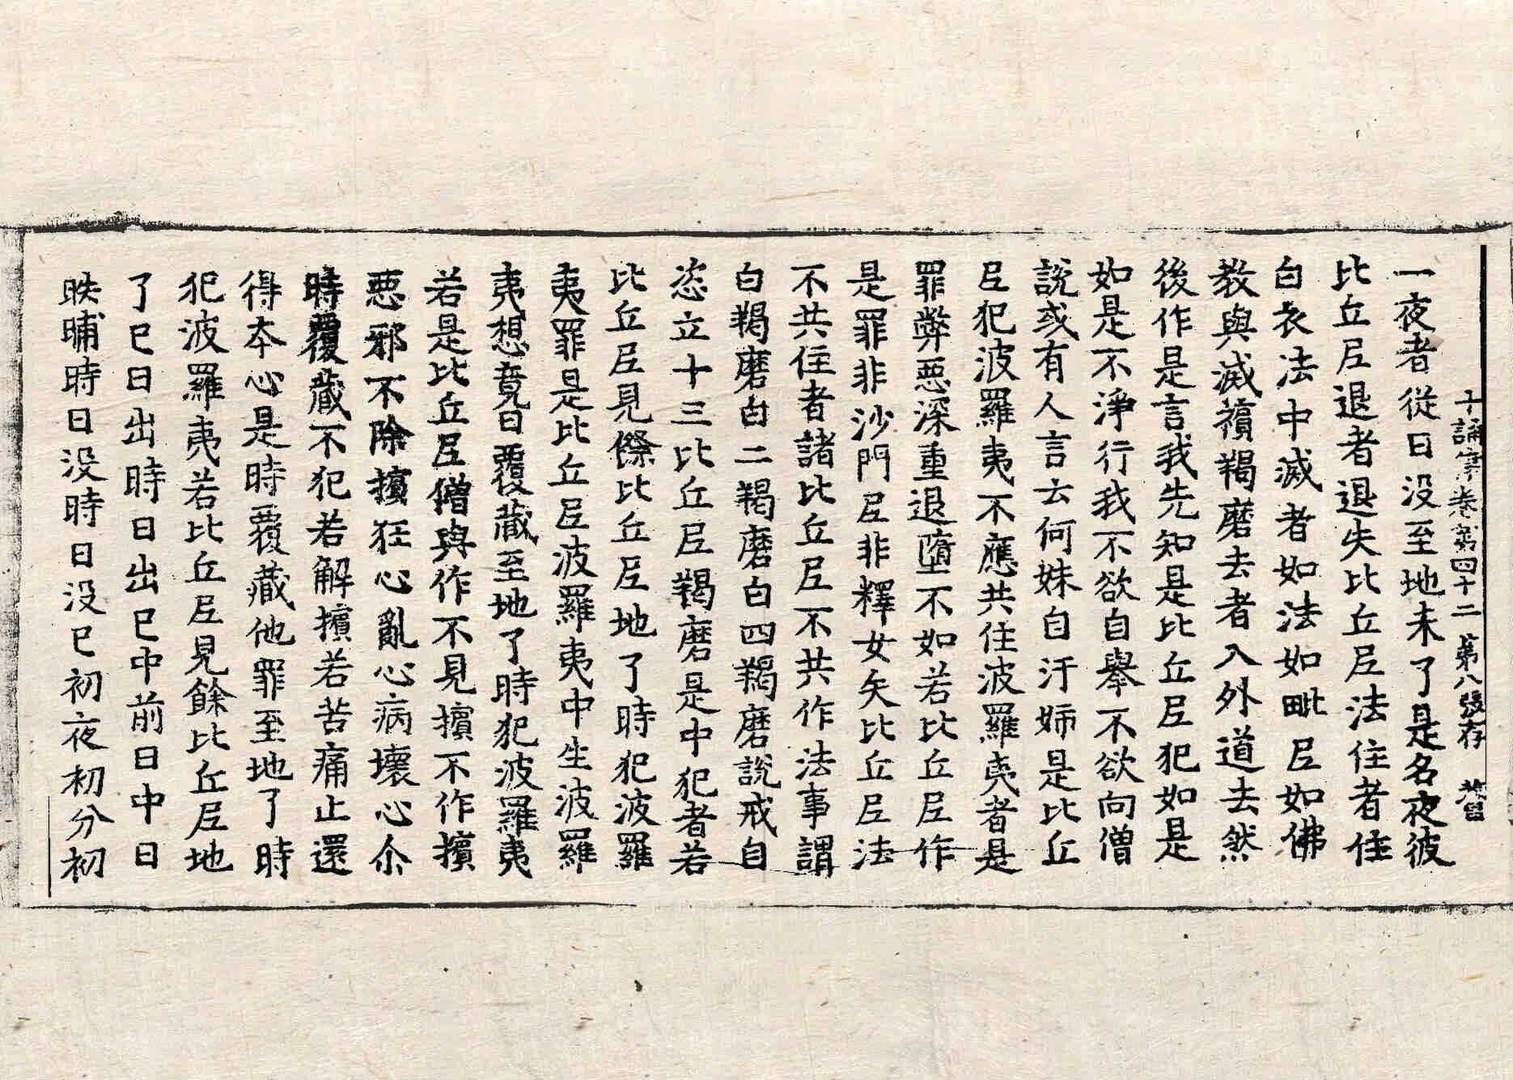 十誦律卷第四十二 第八張存
一夜者從日没至地未了是名夜彼
比丘尼退者退失比丘尼法住者住
白衣法中滅者如法如毗尼如佛
教與滅擯羯磨去者入外道去然
後作是言我先知是比丘尼犯如是
如是不淨行我不欲自舉不欲向僧
説或有人言云何妹自汙姉是比丘
尼犯波羅夷不應共住波羅夷者是
罪弊惡深重退墮不如若比丘尼作
是罪非沙門尼非釋女失比丘尼法
不共住者諸比丘尼不共作法事謂
白羯磨白二羯磨白四羯磨説戒自
恣立十三比丘尼羯磨是中犯者若
比丘尼見餘比丘尼地了時犯波羅
夷罪是比丘尼波羅夷中生波羅
夷想竟日覆藏至地了時犯波羅夷
若是比丘尼僧與作不見擯不作擯
惡邪不除擯狂心亂心病壞心尒
時覆藏不犯若解擯若苦痛止還
得夲心是時覆藏他罪至地了時
犯波羅夷若比丘尼見餘比丘尼地
了已日出時日出已中前日中日
昳晡時日没時日没已初夜初分初